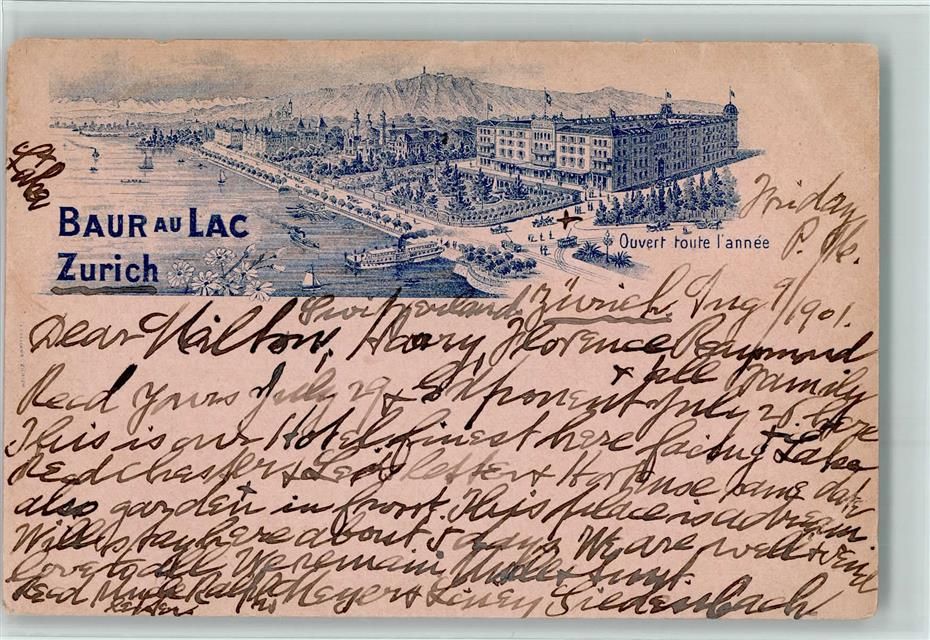 Lake
BAUR AU LAC
Zurich
Ouvert toute l'année
Friday
P. M.
Switzerland Zürich Aug 9/1901.
Dear Milton, Harry, Florence Raymond
+ all Family
Recd yours July 29 + July 28 here
This is our Hotel finest here facing Lake
Recd + letter + same date
also garden in front. This place is a dream
Will stay here about 5 days We are well + send
love to all We remain Uncle + Aunt.
Recd Meyer +
letters